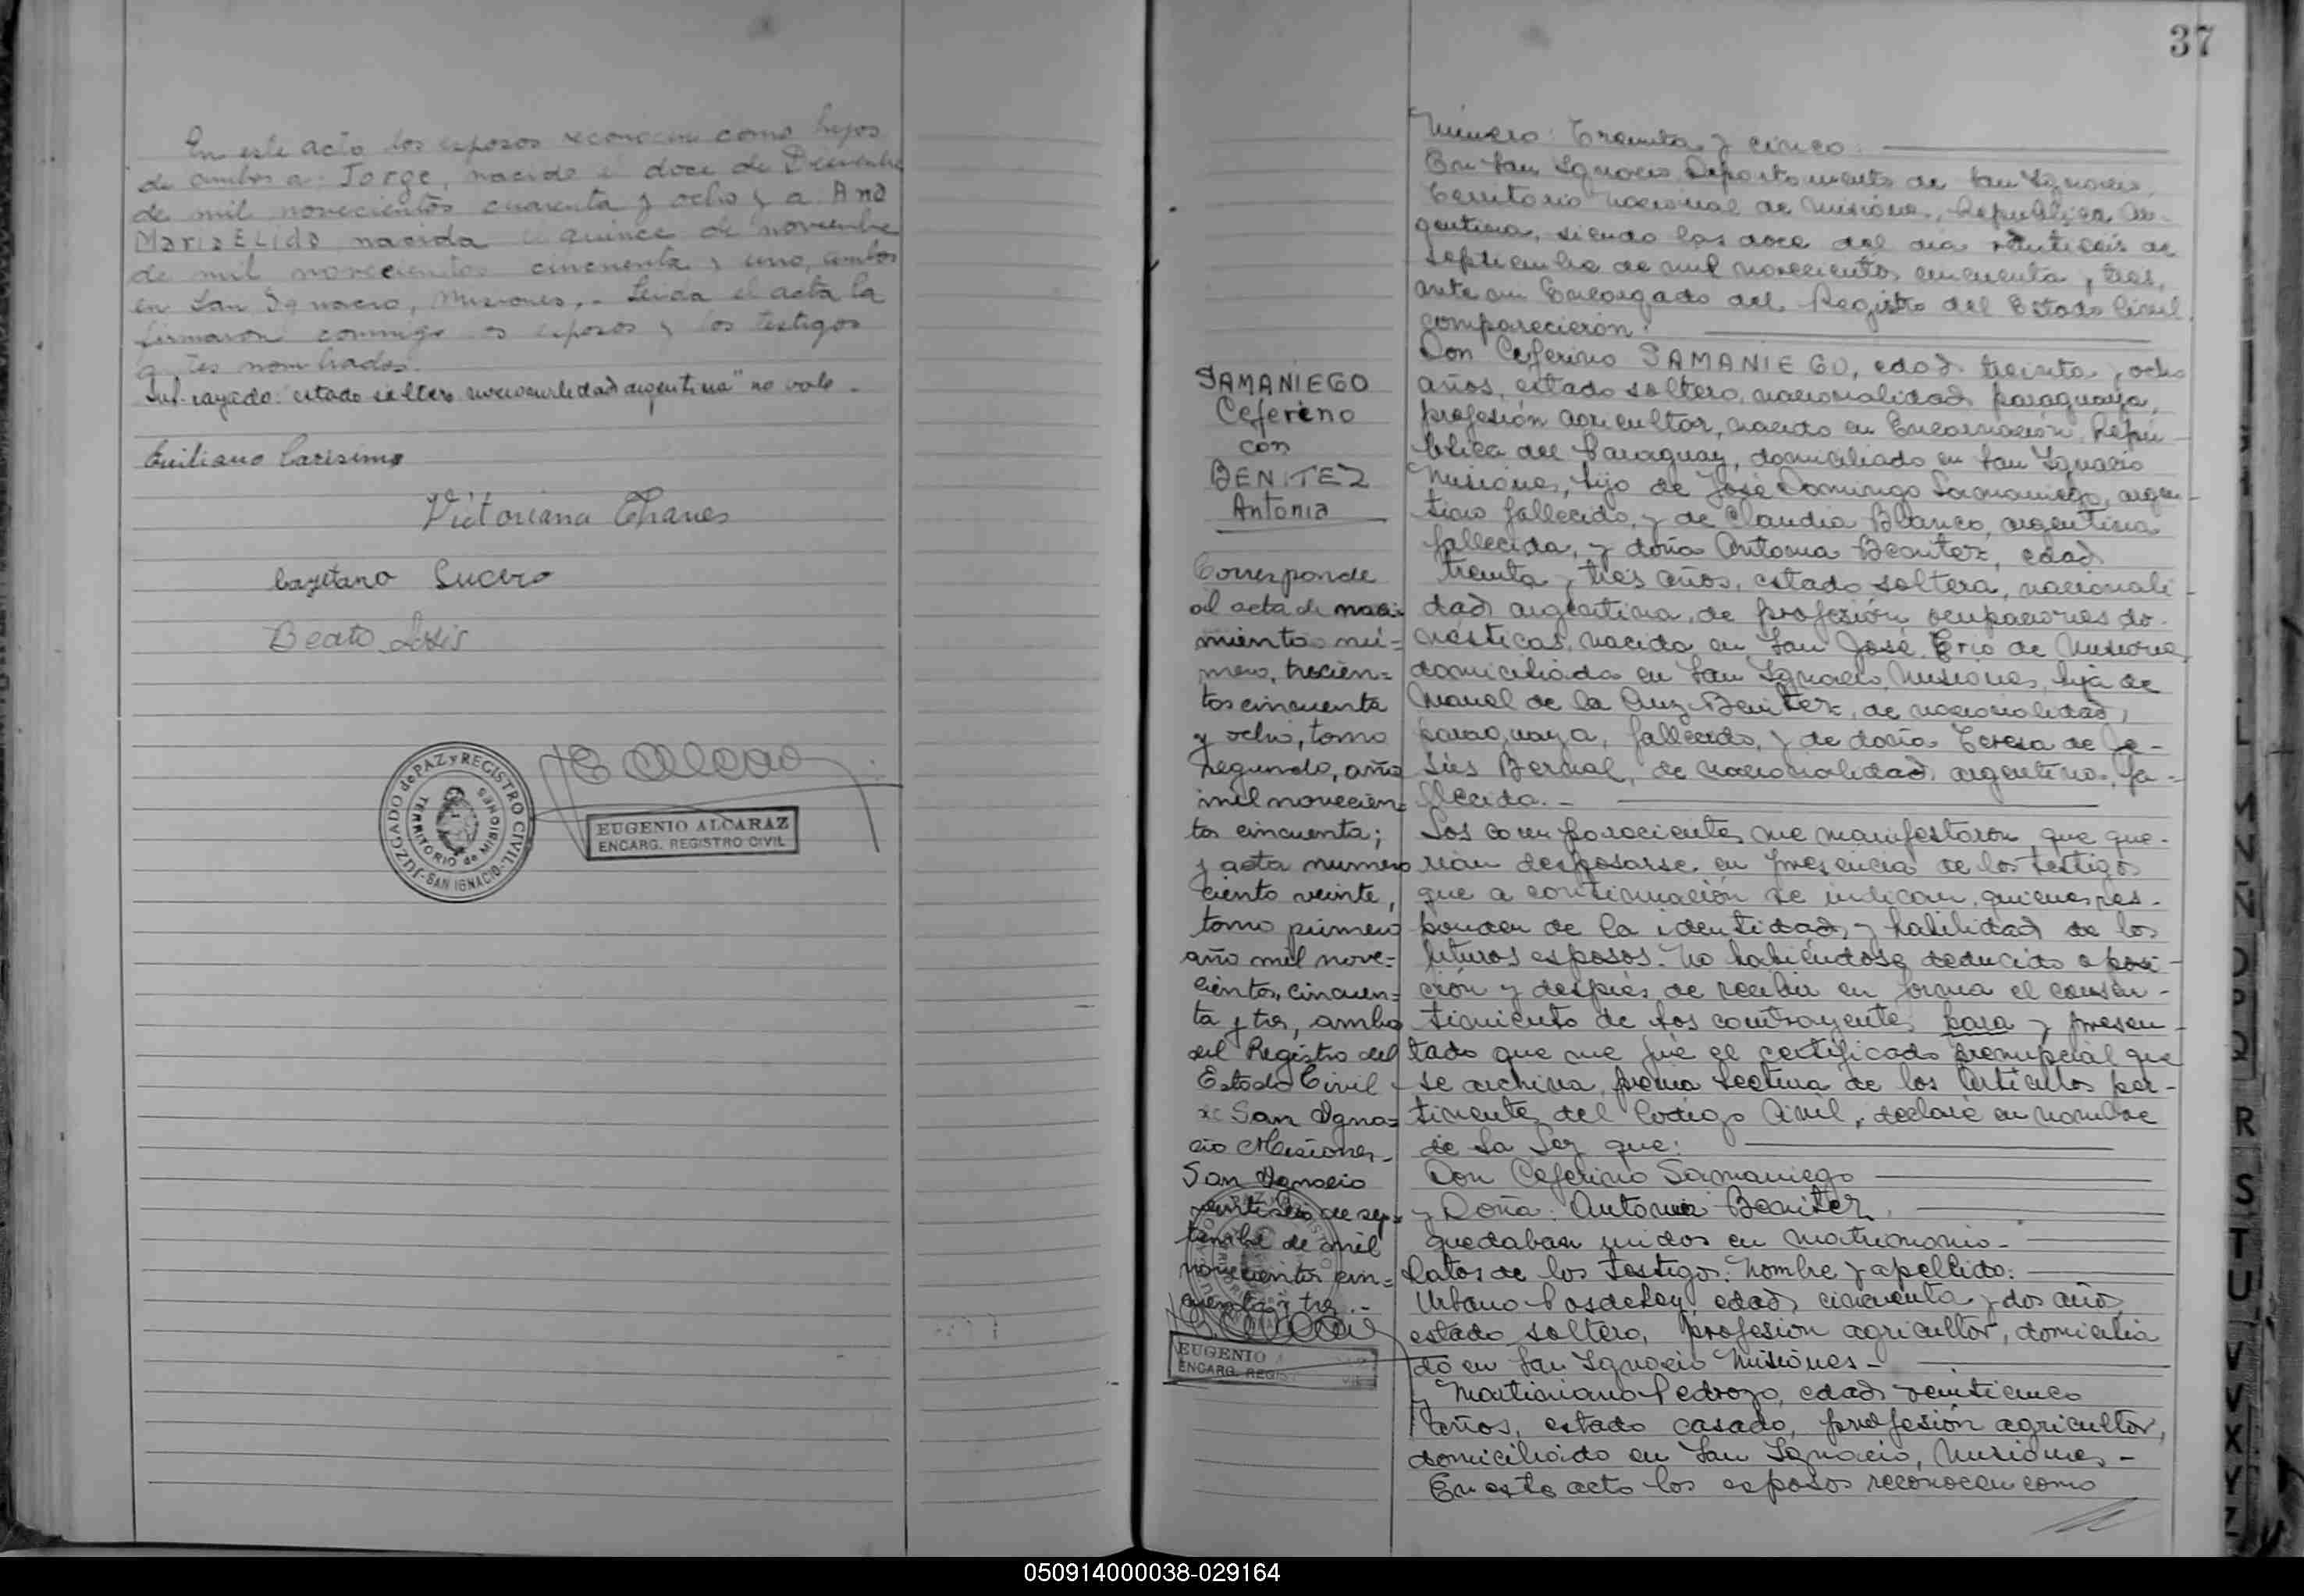 En este acto los esposos reconocen como hijos
de ambos a: Jorge, nacido el doce de Diciembre
de mil novecientos cuarenta y ocho y a Ana
Maria ELida nacida el quince de noviembre
de mil novecientos cincuenta y uno, ambos
en San Ignacio, Misiones.- Leida el acta la
firmaron conmigo los esposos y los testigos
antes nombrados.
Sub-rayado: "estado soltero nacionalidad argentina" no vale.-
Emiliano Carisimo
Victoriana Chaves
Cayetano Lucero
Beato
JUZGADO de PAZ y REGISTRO CIVIL
TERRITORIO de MISIONES
- SAN IGNACIO -
EUGENIO ALCARAZ
ENCARG. REGISTRO CIVIL
37
SAMANIEGO
Ceferino
con
BENITEZ
Antonia
Corresponde
al acta de naci-
miento nú=
mero, trecien=
tos cincuenta
y ocho, tomo
segundo, año
mil novecien=
tos cincuenta;
y acta numero
ciento veinte,
tomo primero
año mil nove=
cientos, cincuen=
ta y tres, ambos
del Registro del
Estado Civil
de San Igna=
cio Misiones-
San Ignacio
veintiseis de sep=
tiembre de mil
novecientos cin=
cuenta y tres.-
EUGENIO A
ENCARG. REGIS
Número: Treinta y cinco.
En San Ignacio Departamento de San Ignacio,
Territorio nacional de Misiones, República Ar-
gentina, siendo las doce del día veintiséis de
septiembre de mil novecientos cincuenta y tres,
ante mi Encargado del Registro del Estado Civil
comparecieron:
Don Ceferino SAMANIEGO, edad treinta y ocho
años, estado soltero, nacionalidad paraguaya,
profesión agricultor, nacido en Encarnación Repú-
blica del Paraguay, domiciliado en San Ignacio
Misiones, hijo de José Domingo Samaniego, argen-
tino fallecido, y de Claudia Blanco, argentina
fallecida, y doña Antonia Benitez, edad
treinta y tres años, estado soltera, nacionali-
dad argentina, de profesión ocupaciones do-
mésticas, nacida en San José, Trio de Misiones,
domiciliada en San Ignacio, Misiones, hija de
Manuel de la Cruz Benitez, de nacionalidad
paraguaya, fallecido, y de doña Teresa de Je-
sús Bernal, de nacionalidad argentina, fa-
llecida.-
Los comparecientes me manifestaron que que-
rían desposarse, en presencia de los testigos
que a continuación se indican, quienes res-
ponden de la identidad y habilidad de los
futuros esposos. No habiéndose deducido oposi-
ción y después de recibir en forma el consen-
timiento de los contrayentes para y presen-
tado que me fué el certificado prenupcial que
se archiva, previa lectura de los Artículos per-
tinentes del Código Civil, declaré en nombre
de la Ley que:
Don Ceferino Samaniego
y Doña: Antonia Benitez
quedaban unidos en matrimonio-
Datos de los testigos: Nombre y apellido:
Urbano Posdeley, edad, cincuenta y dos años
estado soltero, profesión agricultor, domicilia
do en San Ignacio Misiones-
y Martiniano Pedrozo, edad veinticinco
años, estado casado, profesión agricultor,
domiciliado en San Ignacio, Misiones-
En este acto los esposos reconocen como
050914000038-029164